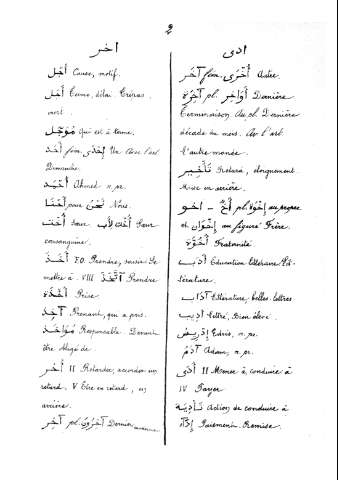 2
اخر
أَجَل Cause, motif.
أَجَل Terme, délai
mort.
مُؤَجَّل qui est à terme.
أَحَد fem. إِحْدَى Un Avec l'art.
Dimanche.
أَحْمَد Ahmed n. pr.
نَحْنُ pour Nous.
أُخْت Sœur أُخْت لِأَب Sœur
consanguine.
أَخَذَ F.O. Prendre, saisir Se
mettre à VIII اتَّخَذَ Prendre
Prise
آخِذ Prenant, qui a pris.
Responsable Devant
être obligé de
أَخَّرَ II Retarder, accorder un
retard. V Être en retard, en
arrière.
آخِر pl. آخِرُونَ Dernier
ادى
آخَر fem. أُخْرَى Autre.
آخِرَة pl. أَوَاخِر Dernière
Terminaison Au pl. Dernière
décade du mois. Av. l'art.
l'autre monde.
تَأْخِير Retard, éloignement
Mise en arrière.
اخو — أَخٌ pl. إِخْوَة au propre
et إِخْوَان au figuré Frère.
أُخُوَّة Fraternité
أَدَب Éducation littéraire Lit-
térature.
آدَاب Littérature, belles lettres
أَدِيب Lettré, bien élevé.
إِدْرِيس Edris, n. pr.
آدَم Adam, n. pr.
أَدَّى II Mener à, conduire à
IV Payer
تَأْدِيَة Action de conduire à
أَدَاء Paiement. Remise.